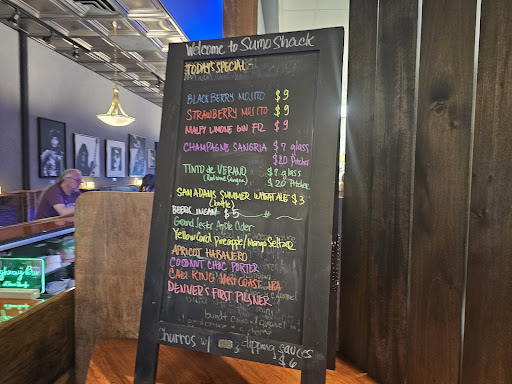 Welcome to Sumo Shack
TODAY'S SPECIAL
BLACKBERRY MOJITO $9
STRAWBERRY MOJITO $9
MALFY LIMONE GIN FIZ $9
CHAMPAGNE SANGRIA $7 glass
$20 Pitcher
TINTO de VERANO $7 glass
$20 Pitcher
SAM ADAMS SUMMER WHEAT ALE $3
(bottle)
$5
Apple Cider
Pineapple/Mango Seltzer
APRICOT HABANERO
COCONUT CHOC PORTER
KING WEST COAST IPA
DENVER'S FIRST PILSNER
Churros w/ dipping sauces
$6